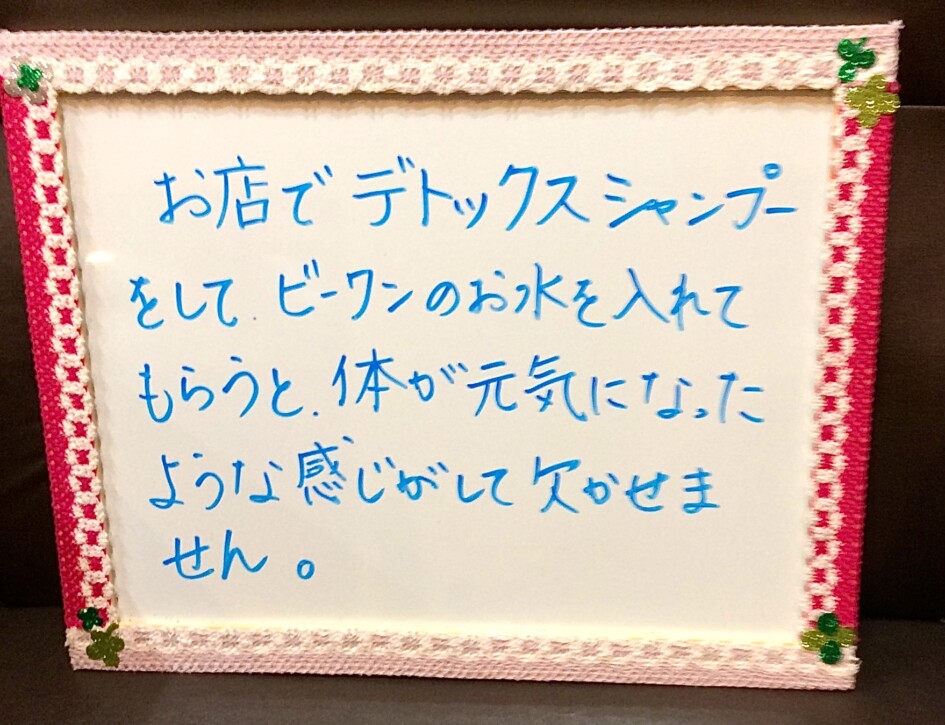 お店でデトックスシャンプー
をして.ビーワンのお水を入れて
もらうと.体が元気になった
ような感じがして欠かせま
せん。